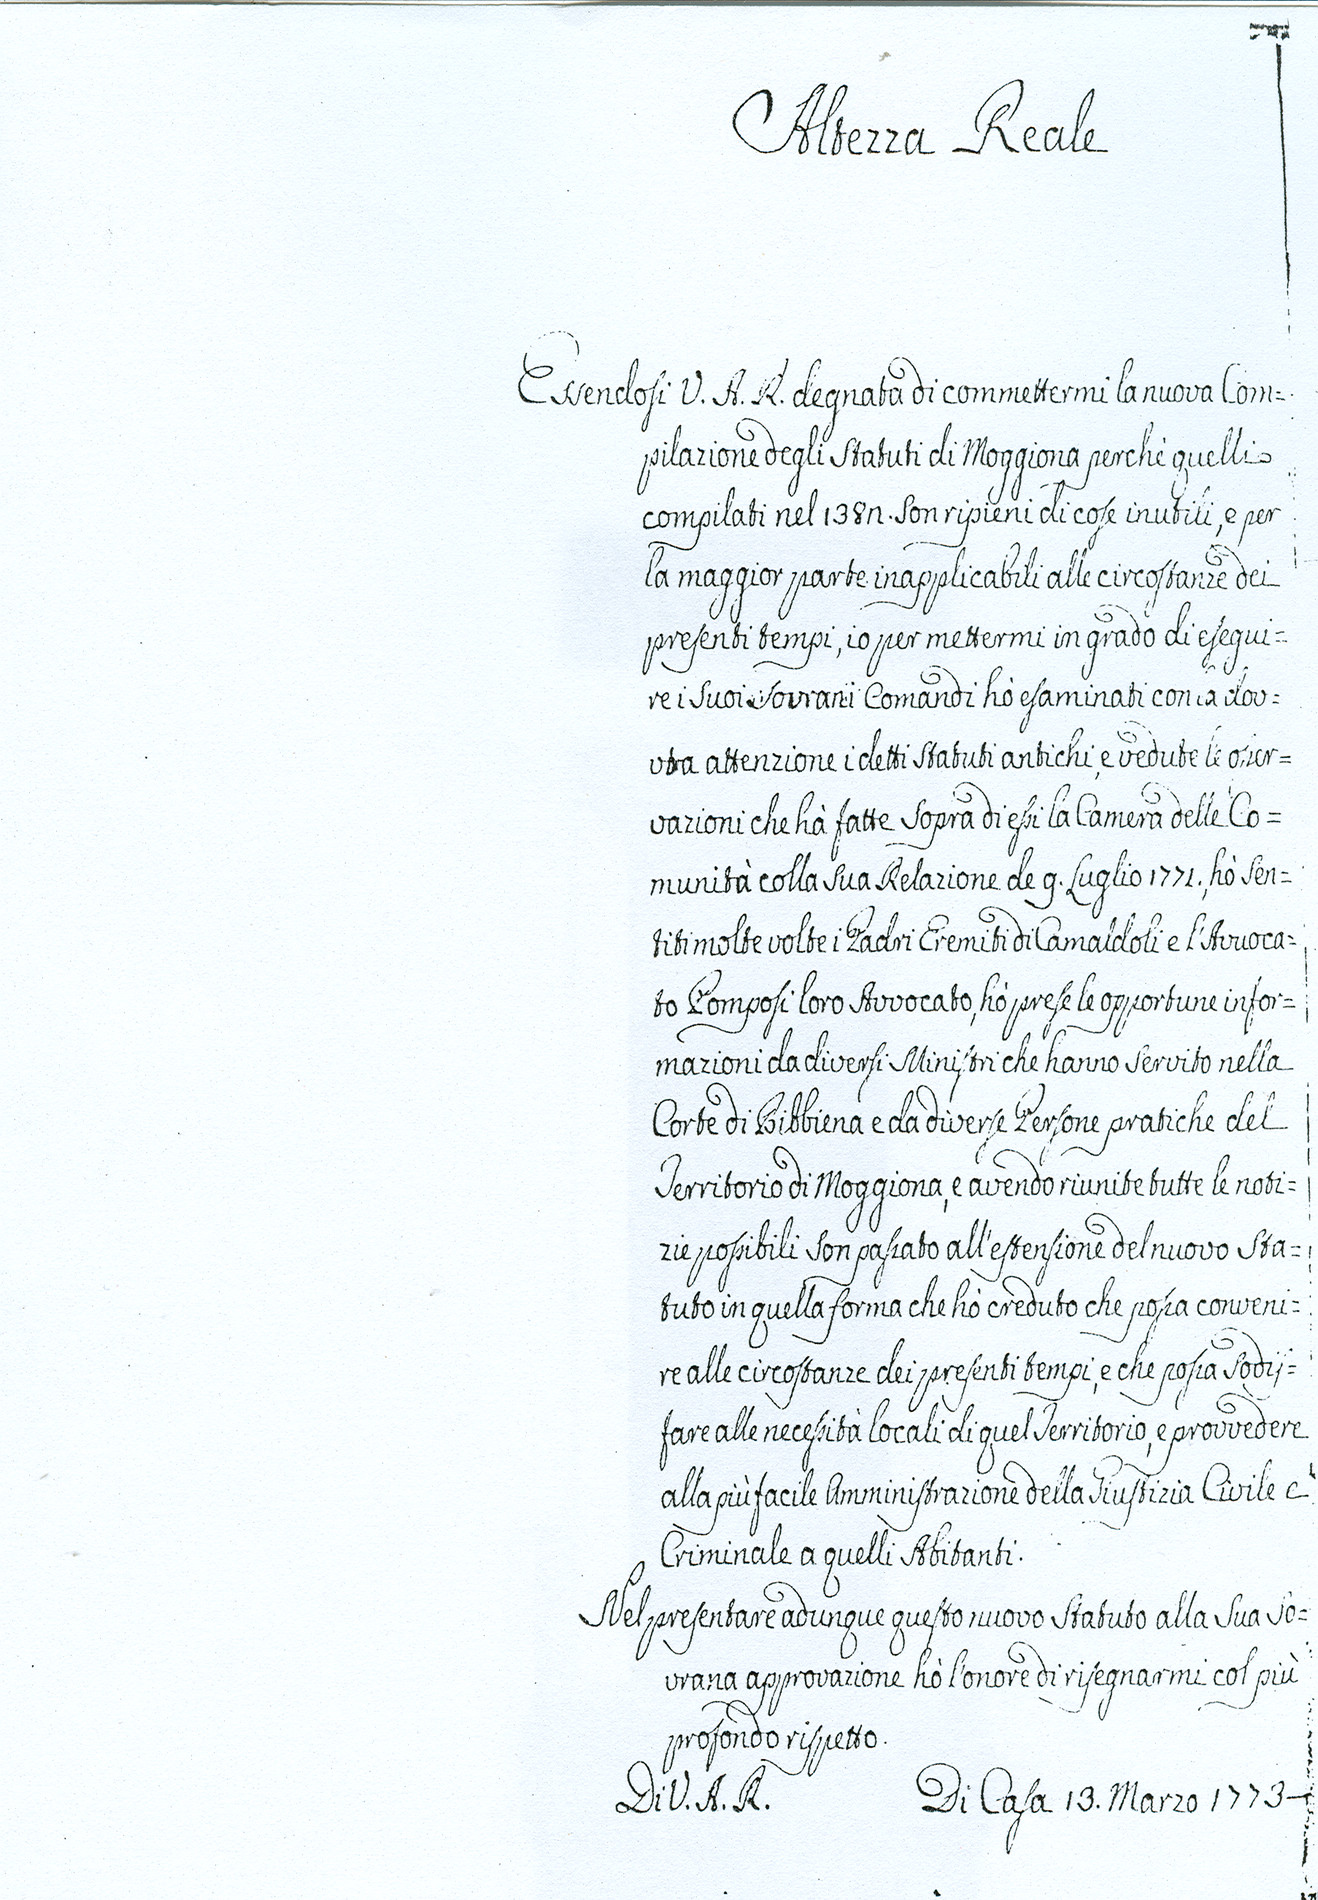 Altezza Reale
Essendosi V. A. R. degnata di commettermi la nuova Com=
pilazione degli Statuti di Moggiona perchè quelli
compilati nel 1382. Son ripieni di cose inutili, e per
la maggior parte inapplicabili alle circostanze dei
presenti tempi, io per mettermi in grado di esegui=
re i Suoi Sovrani Comandi hò esaminati con la dov=
uta attenzione i detti Statuti antichi, e vedute le osser=
vazioni che hà fatte Sopra di essi la Camera delle Co=
munità colla Sua Relazione de 9. Luglio 1771., hò Sen=
titi molte volte i Padri Eremiti di Camaldoli e l'Avvoca=
to Pomposi loro Avvocato, hò prese le opportune infor=
mazioni da diversi Ministri che hanno Servito nella
Corte di Bibbiena e da diverse Persone pratiche del
Territorio di Moggiona, e avendo riunite tutte le noti=
zie possibili Son passato all'estensione del nuovo Sta=
tuto in quella forma che hò creduto che possa conveni=
re alle circostanze dei presenti tempi, e che possa Sodis=
fare alle necessità locali di quel Territorio, e provvedere
alla più facile Amministrazione della Giustizia Civile e
Criminale a quelli Abitanti.
Nel presentare adunque questo nuovo Statuto alla Sua So=
vrana approvazione hò l'onore di risegnarmi col più
profondo rispetto.
Di V. A. R. Di Casa 13. Marzo 1773